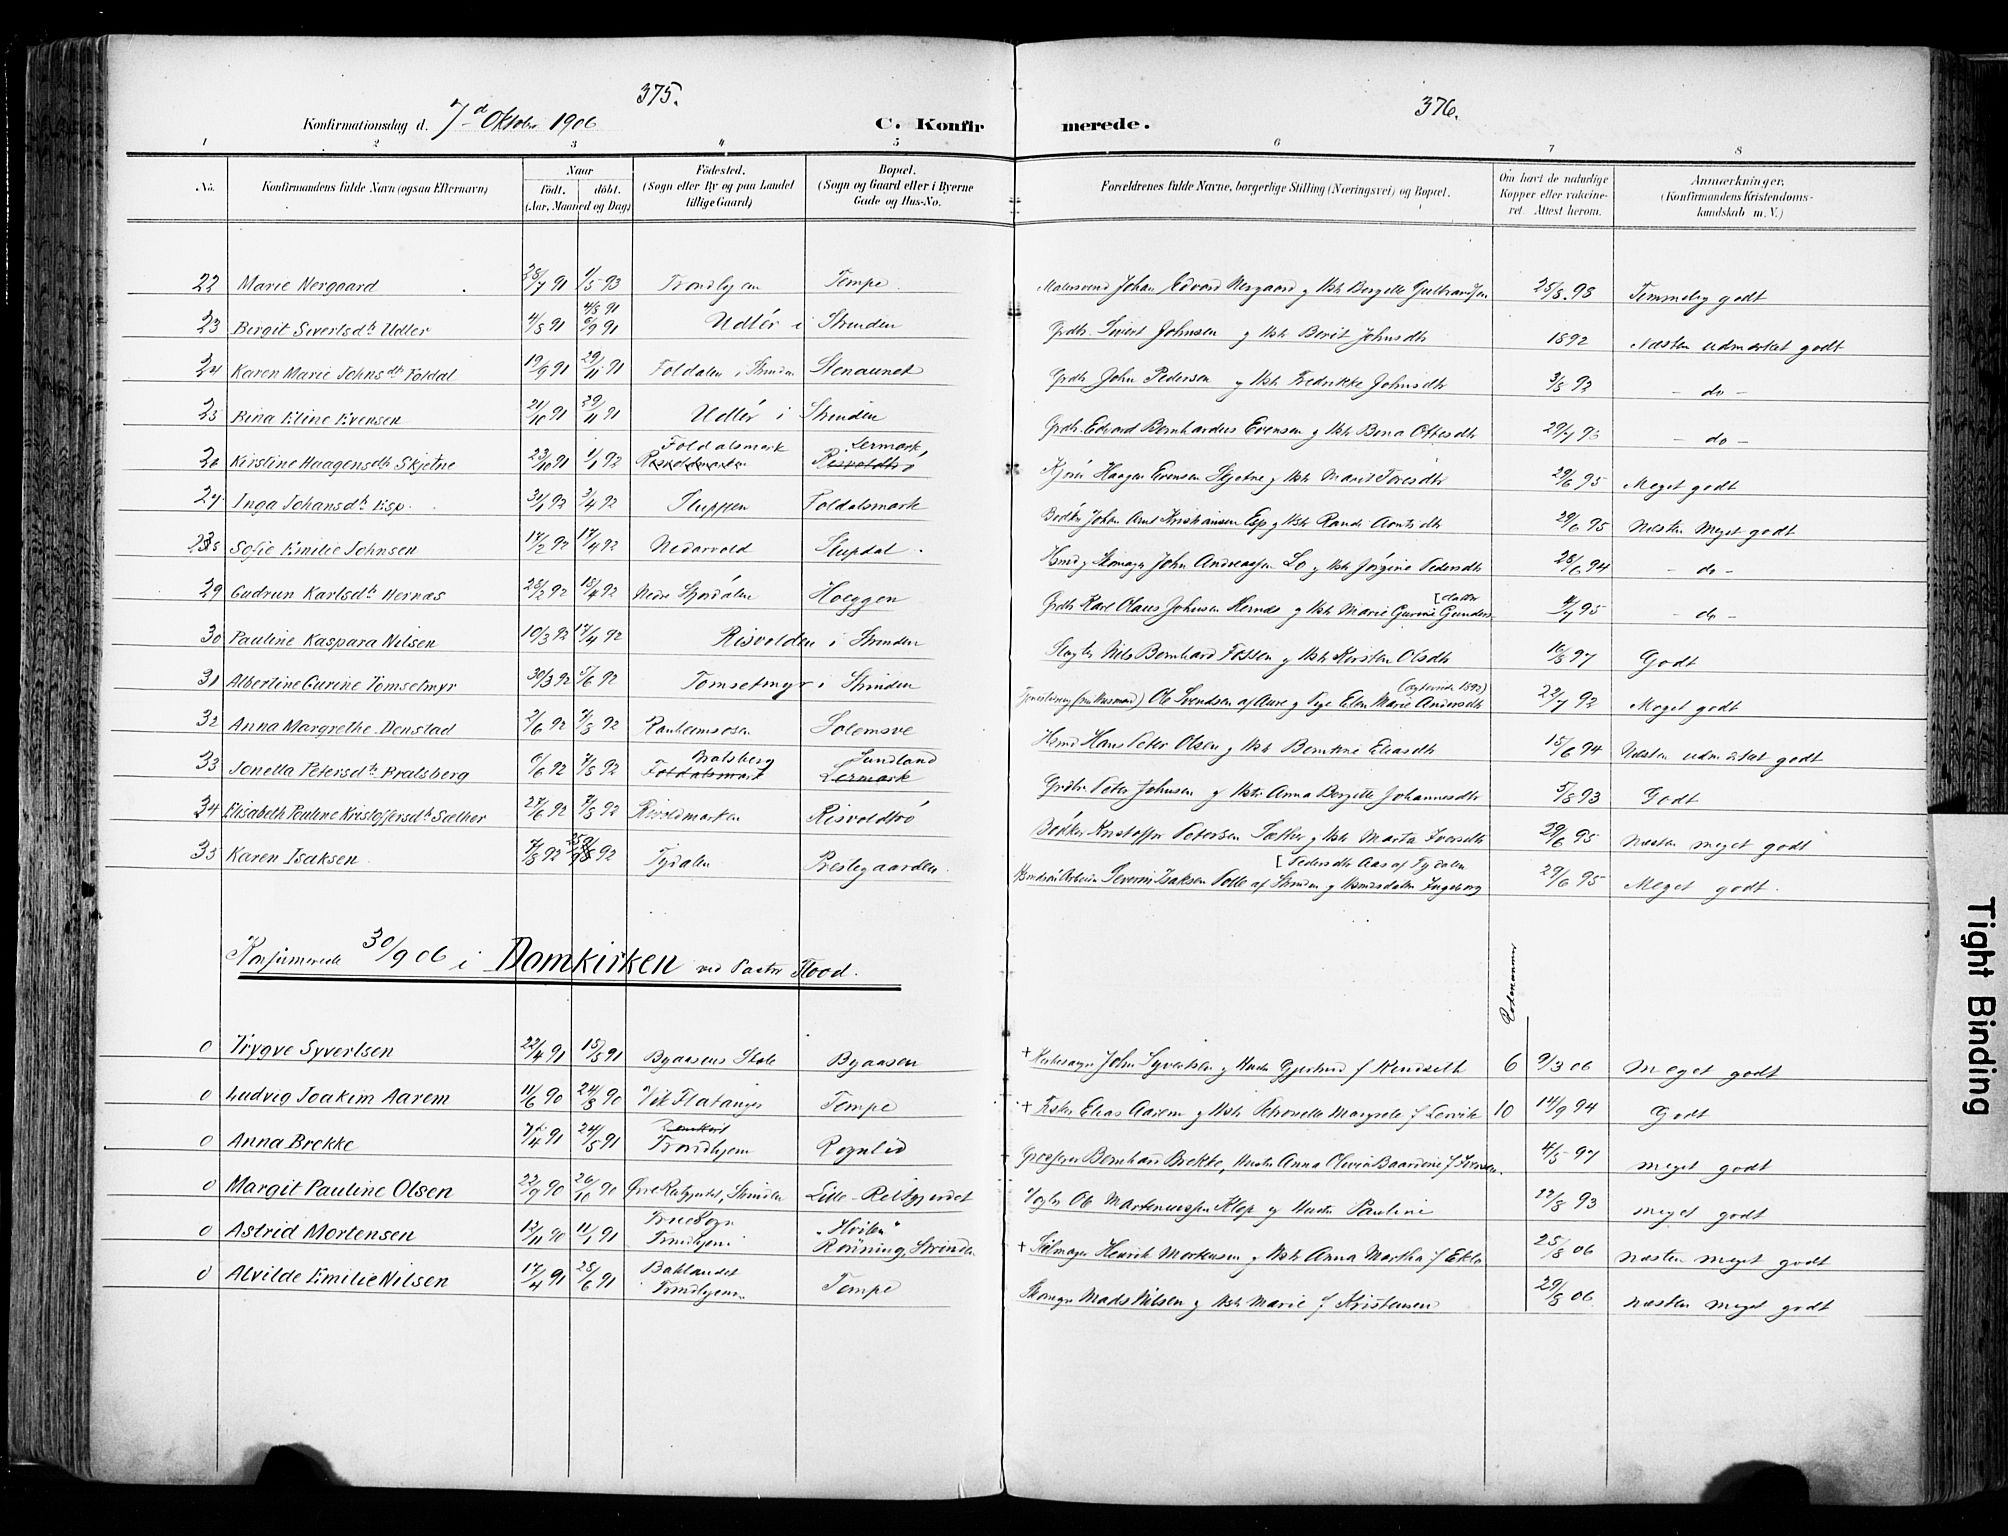 375.
376.
Konfirmationsdag d. 7d Oktober 1906
C. Konfirmerede.
1 2 3 4 5 6 7 8
No. Konfirmandens fulde Navn (ogsaa Efternavn) Naar født. døbt. (Aar, Maaned og Dag) Fødested. (Sogn eller By og paa Landet tillige Gaard) Bopæl. (Sogn og Gaard eller i Byerne Gade og Hus-No. Forældrenes fulde Navne, borgerlige Stilling (Næringsvei) og Bopæl. Om havt de naturlige Kopper eller vakcineret. Attest herom. Anmærkninger. (Konfirmandens Kristendomskundskab m. V.)
22 Marie Nergaard 28/7 91 1/5 93 Trondhjem Tempe Malersvend Johan Edvard Nergaard g Hst Bergitte Gulbrandsen 25/8 98 Temmelig godt
23 Birgit Sivertsdtr Udler 4/8 91 6/9 91 Udlér i Strinden Grdbr. Sivert Johnsen g Hst Berit Johnsdtr 1892 Næsten udmærket godt
24 Karen Marie Johnsdtr Foldal 19/9 91 29/11 91 Foldalen i Strinden Stenaunet Grdbr John Pedersen g Hst Fredrikke Johnsdtr 3/8 92 - do -
25 Bina Eline Evensen 21/10 91 29/11 91 Udlér i Strinden Grdbr. Edvard Bernhardus Evensen g Hst Bona Ottesdtr - do -
Kirstine Haagensdtr Skjetne 23/10 91 1/1 92 Foldalsmark Lermark Haagen Evensen Skjetne g Hst Marit Toresdtr 29/6 95 Meget godt
27 Inga Johansdtr Esp 31/1 92 3/4 92 Foldalsmark Bødker Johan Arnt Kristiansen Esp g Hst Randi Arntsdtr 29/6 95 Næsten meget godt
Sofie Emilie Johnsen 17/2 92 17/4 92 Nedarvold Stupdal Johan Andreassen Lo g Hst Jørgine Pedersdtr 28/6 94 - do -
29 Gudrun Karlsdtr Hernæs 28/2 92 18/4 92 Nedre Hoeggen Grdbr Karl Olaus Johnsen Hernæs g Hst Marie Gurine Gunders [datter 95 - do -
30 Pauline Kaspara Nilsen 10/3 92 17/4 92 Risvolden i Strinden Nils Bernhard Fossen g Hst Kirsten Olsdtr 16/8 97 Godt
31 Albertine Gurine Tomsetmyr 30/3 92 5/6 92 Tomsetmyr i Strinden Ole Svendsen af Aure g Pige Elen Marie Andersdtr 22/7 92 Meget godt
32 Anna Margrethe Denstad 2/6 92 7/8 92 Ranheimsosen Solemsve Hsmd Hans Peter Olsen g Hst Berntine Eliasdtr 15/6 94 Næsten udmærket godt
33 Jonetta Petersdtr Bratsberg 6/6 92 7/8 92 Bratsberg Foldalsmark Sundland Lermark Grdbr. Peter Johnsen g Hst Anna Bergitte Johannesdtr 5/8 93 Godt
34 Elisabeth Pauline Kristoffersdtr Sæther 27/6 92 7/8 92 Risvoldmarken Risvoldtrø Bødker Kristoffer Petersen Sæther g Hst Marta Iversdtr 29/6 95 Næsten meget godt
35 Karen Isaksen 7/8 92 Tydalen Prestegaarden Severin Isaksen af Strinden g Ingeborg [Pedersdtr Aas af Tydalen 29/6 95 Meget godt.
Konfirmerede 30/9 06 i Domkirken ved Pastor Flood.
0 Trygve Syvertsen 22/4 91 18/5 91 Byaasens Skole Byaasen + John Syvertsen g Hustr Gjertrud f Kindseth 6 9/3 06 Meget godt
0 Ludvig Joakim Aarem 11/6 90 24/8 90 Vik Flatanger Tempe + Elias Aarem g Hst Petronelle Margrete f Lervik 10 14/9 94 Godt
0 Anna Brekke 24/5 91 Trondhjem Rognlid Bernhard Brekke, Hustr Anna Olivia Baardine f Iversen. 4/5 97 meget godt
0 Margit Pauline Olsen 22/9 90 26/10 90 Øvre Reitgjerdet, Strinden Lille-Reitgjerdet Ole Martenussen Klep g Hustr Pauline 93 meget godt
0 Astrid Mortensen 12/11 90 11/1 91 Frue Sogn Trondhjem Rønning, Strinden + Henrik Mortensen g Hst Anna Martha f Ekle 25/8 06 næsten meget godt
0 Alvilde Emilie Nilsen 17/4 91 28/6 91 Baklandet Trondhjem Tempe Skomgr Mads Nilsen g Hst Marie f Kristensen 29/8 06 næsten meget godt
Tight Binding